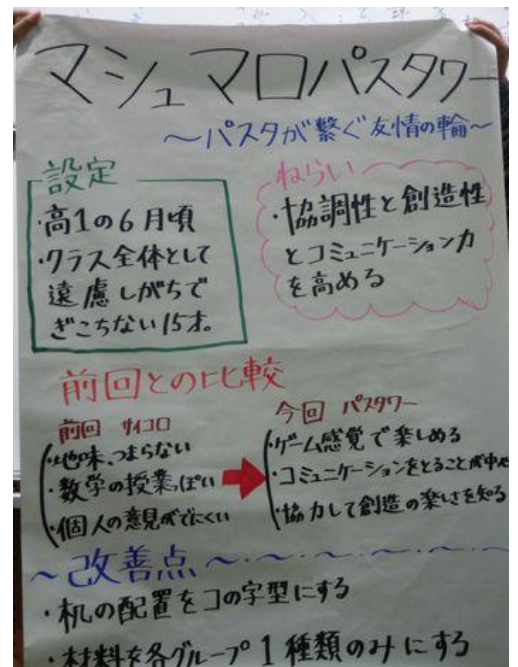 マシュマロパスタワー
～パスタが繋ぐ友情の輪～
設定
・高1の6月頃
・クラス全体として
遠慮しがちで
ぎこちない15才。
ねらい
・協調性と創造性
とコミュニケーション力
を高める
前回との比較
前回 サイコロ
・地味、つまらない
・数学の授業っぽい
・個人の意見がでにくい
今回 パスタワー
・ゲーム感覚で楽しめる
・コミュニケーションをとることが中心
・協力して創造の楽しさを知る
～改善点～・～・～・～・～
・机の配置をコの字型にする
・材料を各グループ1種類のみにする